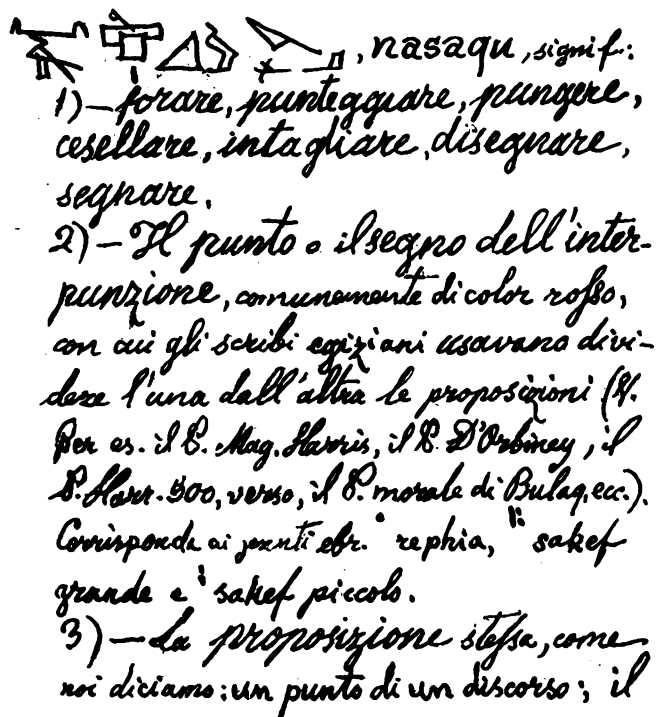 , nasaqu, signif.:
1) — forare, punteggiare, pungere,
cesellare, intagliare, disegnare,
segnare.
2) — Il punto o il segno dell'inter-
punzione, comunemente di color rosso,
con cui gli scribi egiziani usavano divi-
dere l'una dall'altra le proposizioni (V.
Per es. il P. Mag. Harris, il P. D'Orbiney, il
P. Harr. 500, verso, il P. morale di Bulaq, ecc.).
Corrisponde ai punti ebr. rephia, sakef
grande e sakef piccolo.
3) — La proposizione stessa, come
noi diciamo: un punto di un discorso; il